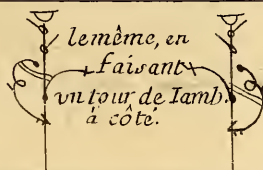 le même, en
faisant
un tour de Iamb.
à côté.